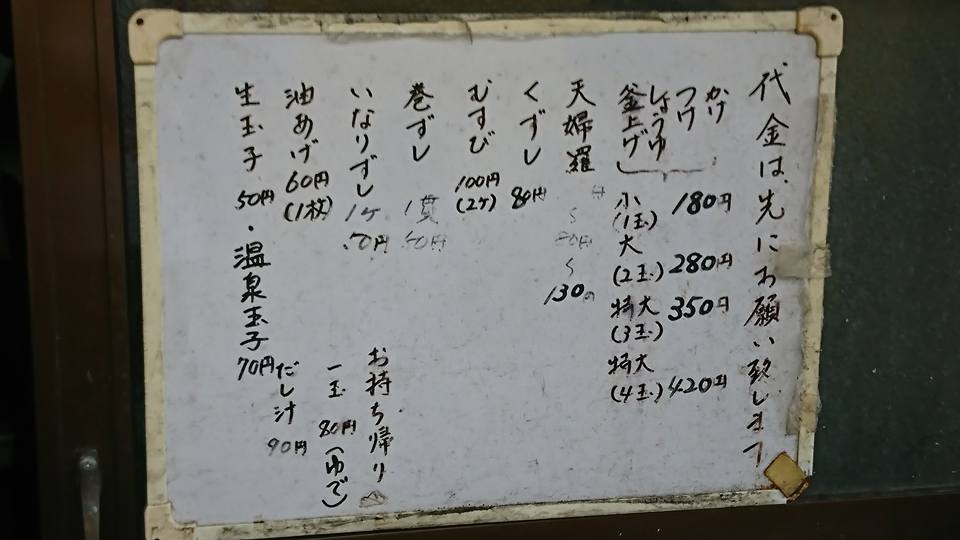 代金は先にお願い致します
かけ
つけ
しょうゆ
釜上げ
小(1玉) 180円
大(2玉) 280円
特大(3玉) 350円
特大(4玉) 420円
天婦羅 130円
くずし 80円
むすび 100円(2ケ)
巻ずし 1貫
いなりずし 1ケ
油あげ 60円(1枚)
生玉子 50円・温泉玉子 70円
お持ち帰り
一玉 80円(ゆで)
だし汁 90円